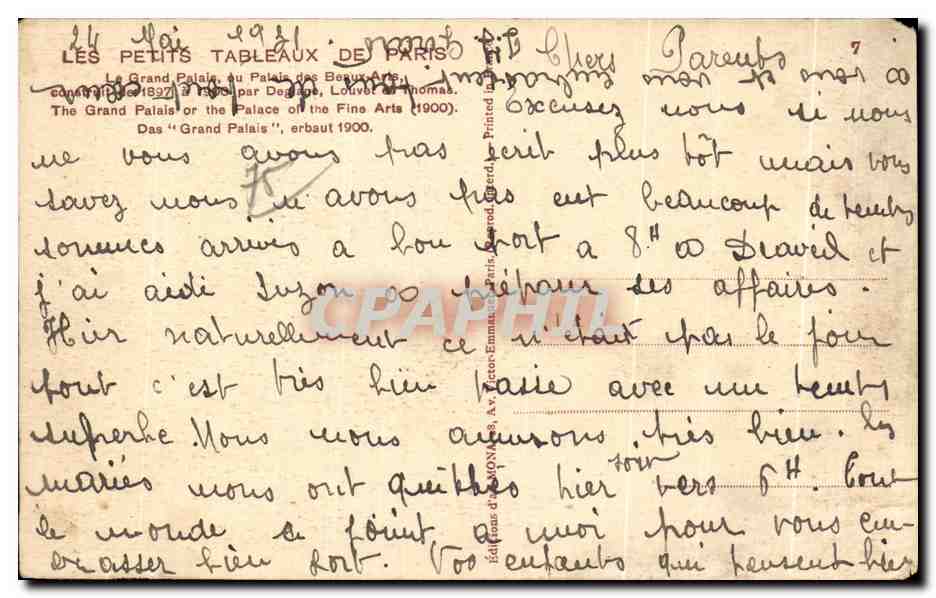 24 Mai 1931
LES PETITS TABLEAUX DE PARIS
7
Le Grand Palais, ou Palais des Beaux-Arts,
construit de 1897 à 1900 par Deglane, Louvet et Thomas.
The Grand Palais or the Palace of the Fine Arts (1900).
Das "Grand Palais", erbaut 1900.
Chers Parents
Excusez nous si nous
ne vous avons pas écrit plus tôt mais vous
savez nous n'avons pas eut beaucoup de temps
sommes arrivés a bon port a 8H a Draveil et
j'ai aidé Suzon a préparer ses affaires.
Hier naturellement ce n'était pas le jour
tout c'est très bien passé avec un temps
superbe. Nous nous amusons très bien. les
mariés nous ont quittés hier soir vers 6H. Tout
le monde se joint a moi pour vous em-
brasser bien fort. Vos enfants qui pensent bien
75
Editions d'art MONA, 8, Av. Victor-Emmanuel, Paris. Reprod. interd. Printed in France
CPAPHIL